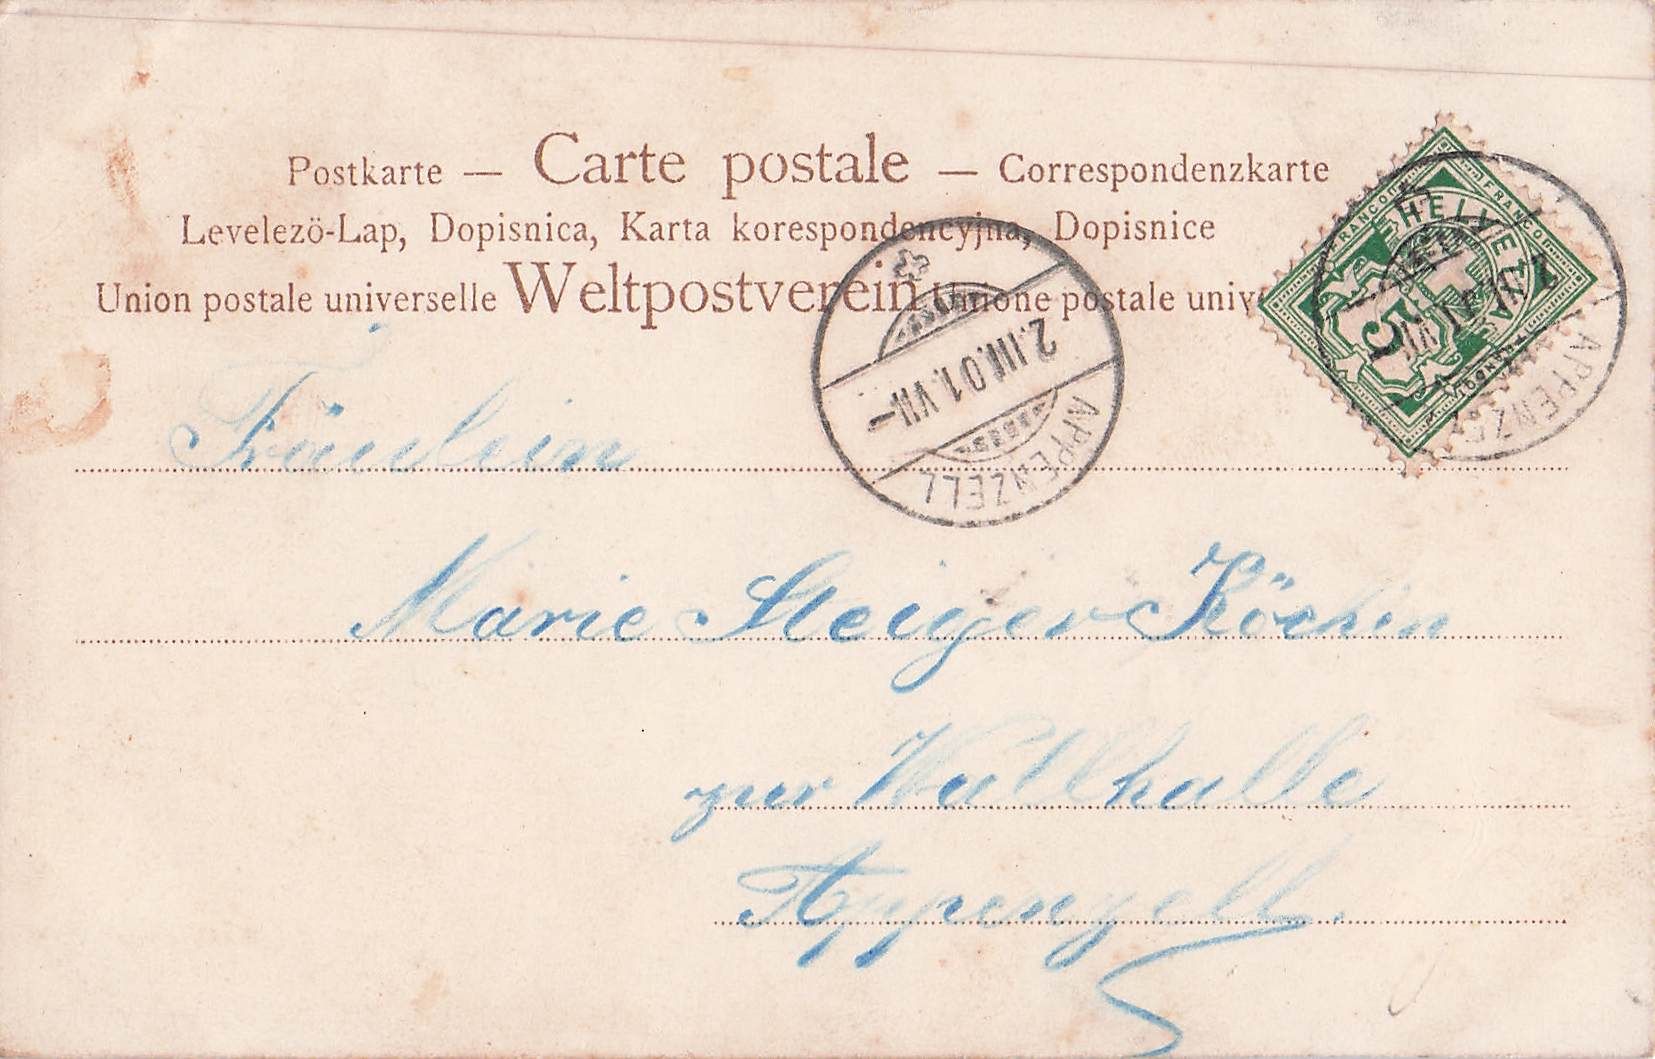 Postkarte — Carte postale — Correspondenzkarte
Levelezö-Lap, Dopisnica, Karta korespondencyjna, Dopisnice
Union postale universelle Weltpostverein Unione postale univ
FRANCO FRANCO
HELVETIA
5
APPENZE
2.III.01.VII.—
APPENZELL
Fräulein
Marie Steiger Köchin
zur Wallhalle
Appenzell.